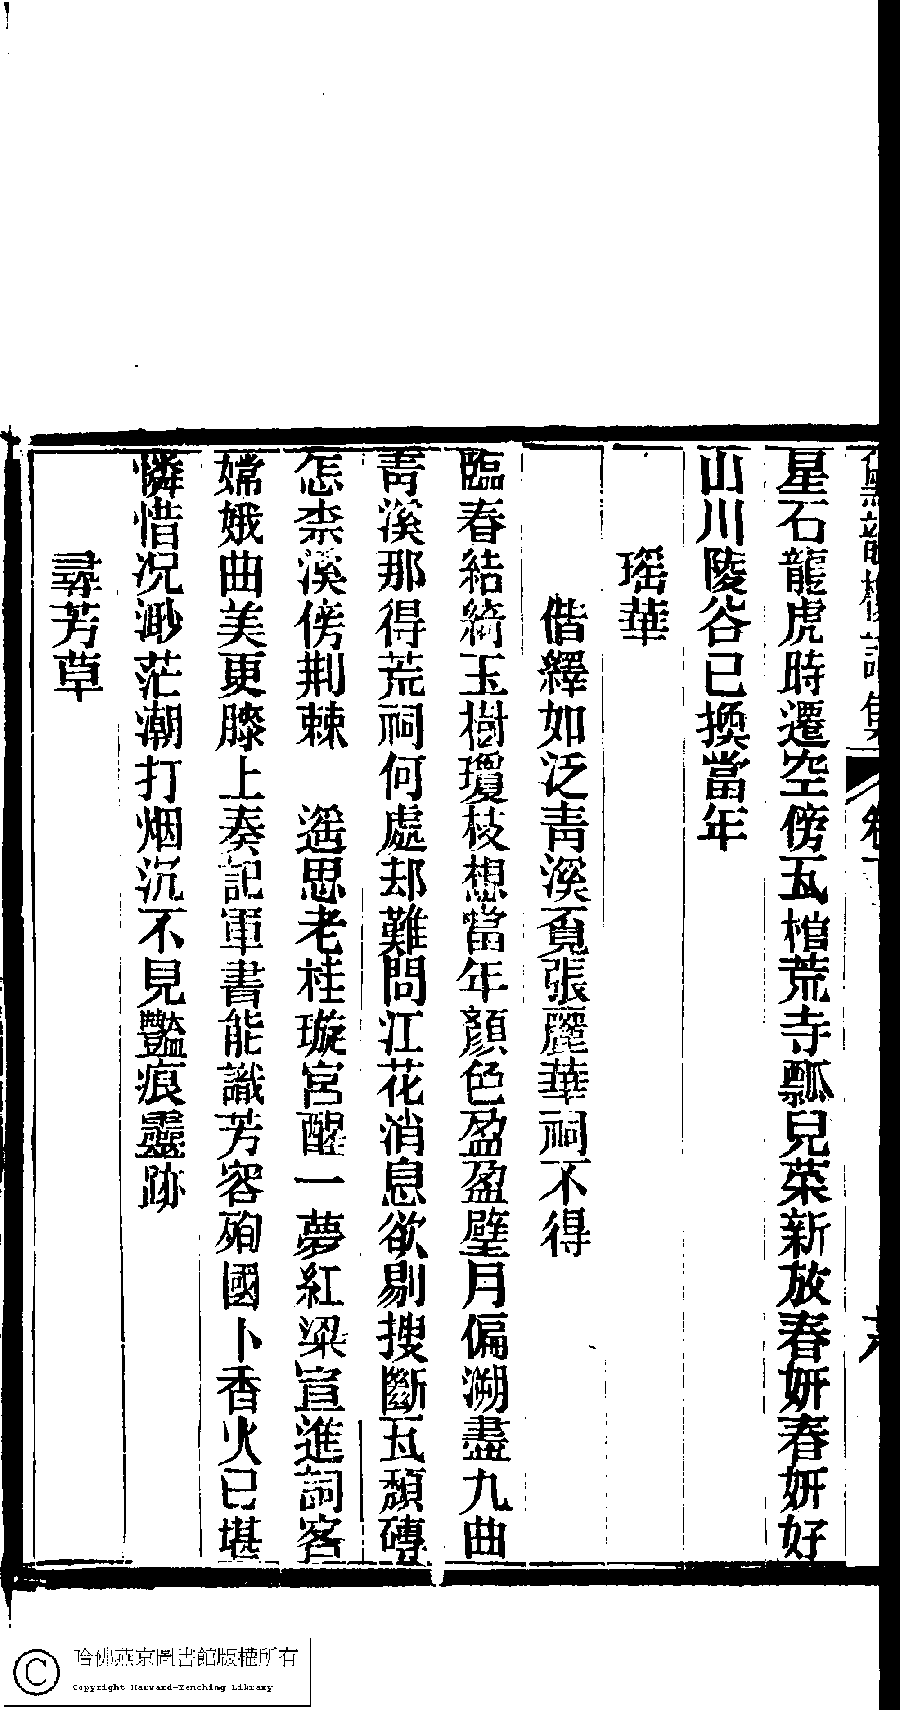 星石龍虎時遷空傍瓦棺荒寺瓢兒菜新放春妍春妍好
山川陵谷已換當年
瑶華
偕繹如泛青溪覓張麗華祠不得
臨春結綺玉樹瓊枝想當年顏色盈盈璧月偏溯盡九曲
青溪那得荒祠何處却難問江花消息欲剔搜斷瓦頽磚
怎柰溪傍荆棘　遥思老桂璇宮醒一夢紅粱宣進詞客
嫦娥曲美更膝上奏記軍書能識芳容殉國卜香火已堪
憐惜况渺茫潮打烟沉不見豔痕靈跡
尋芳草
哈佛燕京圖書館版權所有
Copyright Harvard-Yenching Library